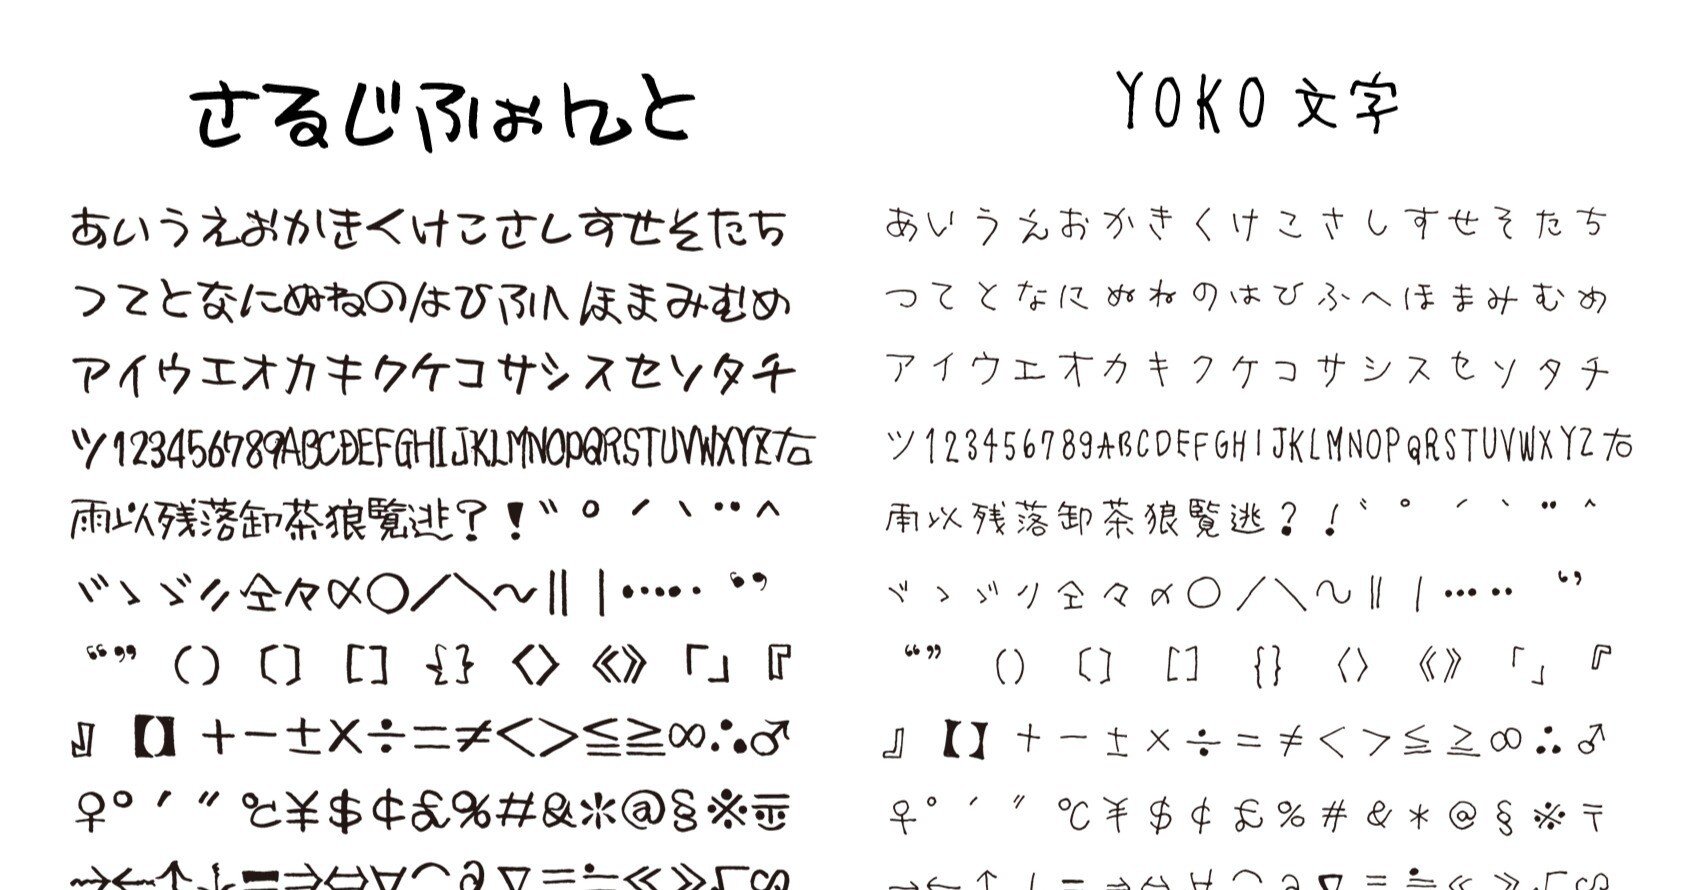 さるじふぉんと
あいうえおかきくけこさしすせそたち
つてとなにぬねのはひふへほまみむめ
アイウエオカキクケコサシスセソタチ
ツ123456789ABCDEFGHIJKLMNOPQRSTUVWXYZ右
雨以残落卸茶狼覧逃?!゛゜´｀¨＾
ヾゝゞ〃仝々〆〇／＼～∥｜…‥‘’
“”()〔〕[]{}〈〉《》「」『
』【】＋－±×÷＝≠＜＞≦≧∞∴♂
♀°′″℃￥＄￠￡％＃＆＊＠§※〒
→←↑↓〓⇒⇔∀⌒∂∇≡≒≪≫√∽
YOKO文字
あいうえおかきくけこさしすせそたち
つてとなにぬねのはひふへほまみむめ
アイウエオカキクケコサシスセソタチ
ツ123456789ABCDEFGHIJKLMNOPQRSTUVWXYZ右
雨以残落卸茶狼覧逃?!゛゜´｀¨＾
ヾゝゞ〃仝々〆〇／＼～∥｜…‥‘’
“”()〔〕[]{}〈〉《》「」『
』【】＋－±×÷＝≠＜＞≦≧∞∴♂
♀°′″℃￥＄￠￡％＃＆＊＠§※〒
→←↑↓〓⇒⇔∀⌒∂∇≡≒≪≫√∽